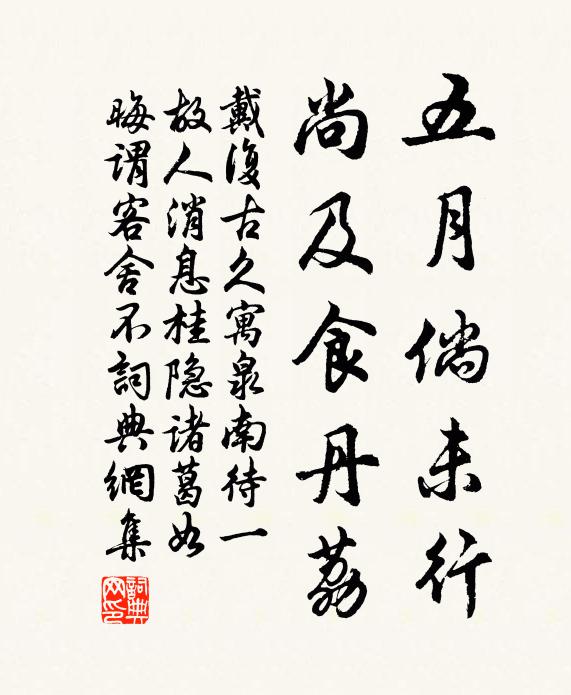 五月倘未行
尚及食丹荔
戴復古久寓泉南待一
故人消息桂隐諸葛如
晦謂客舍不詞典網集
詞典
网印